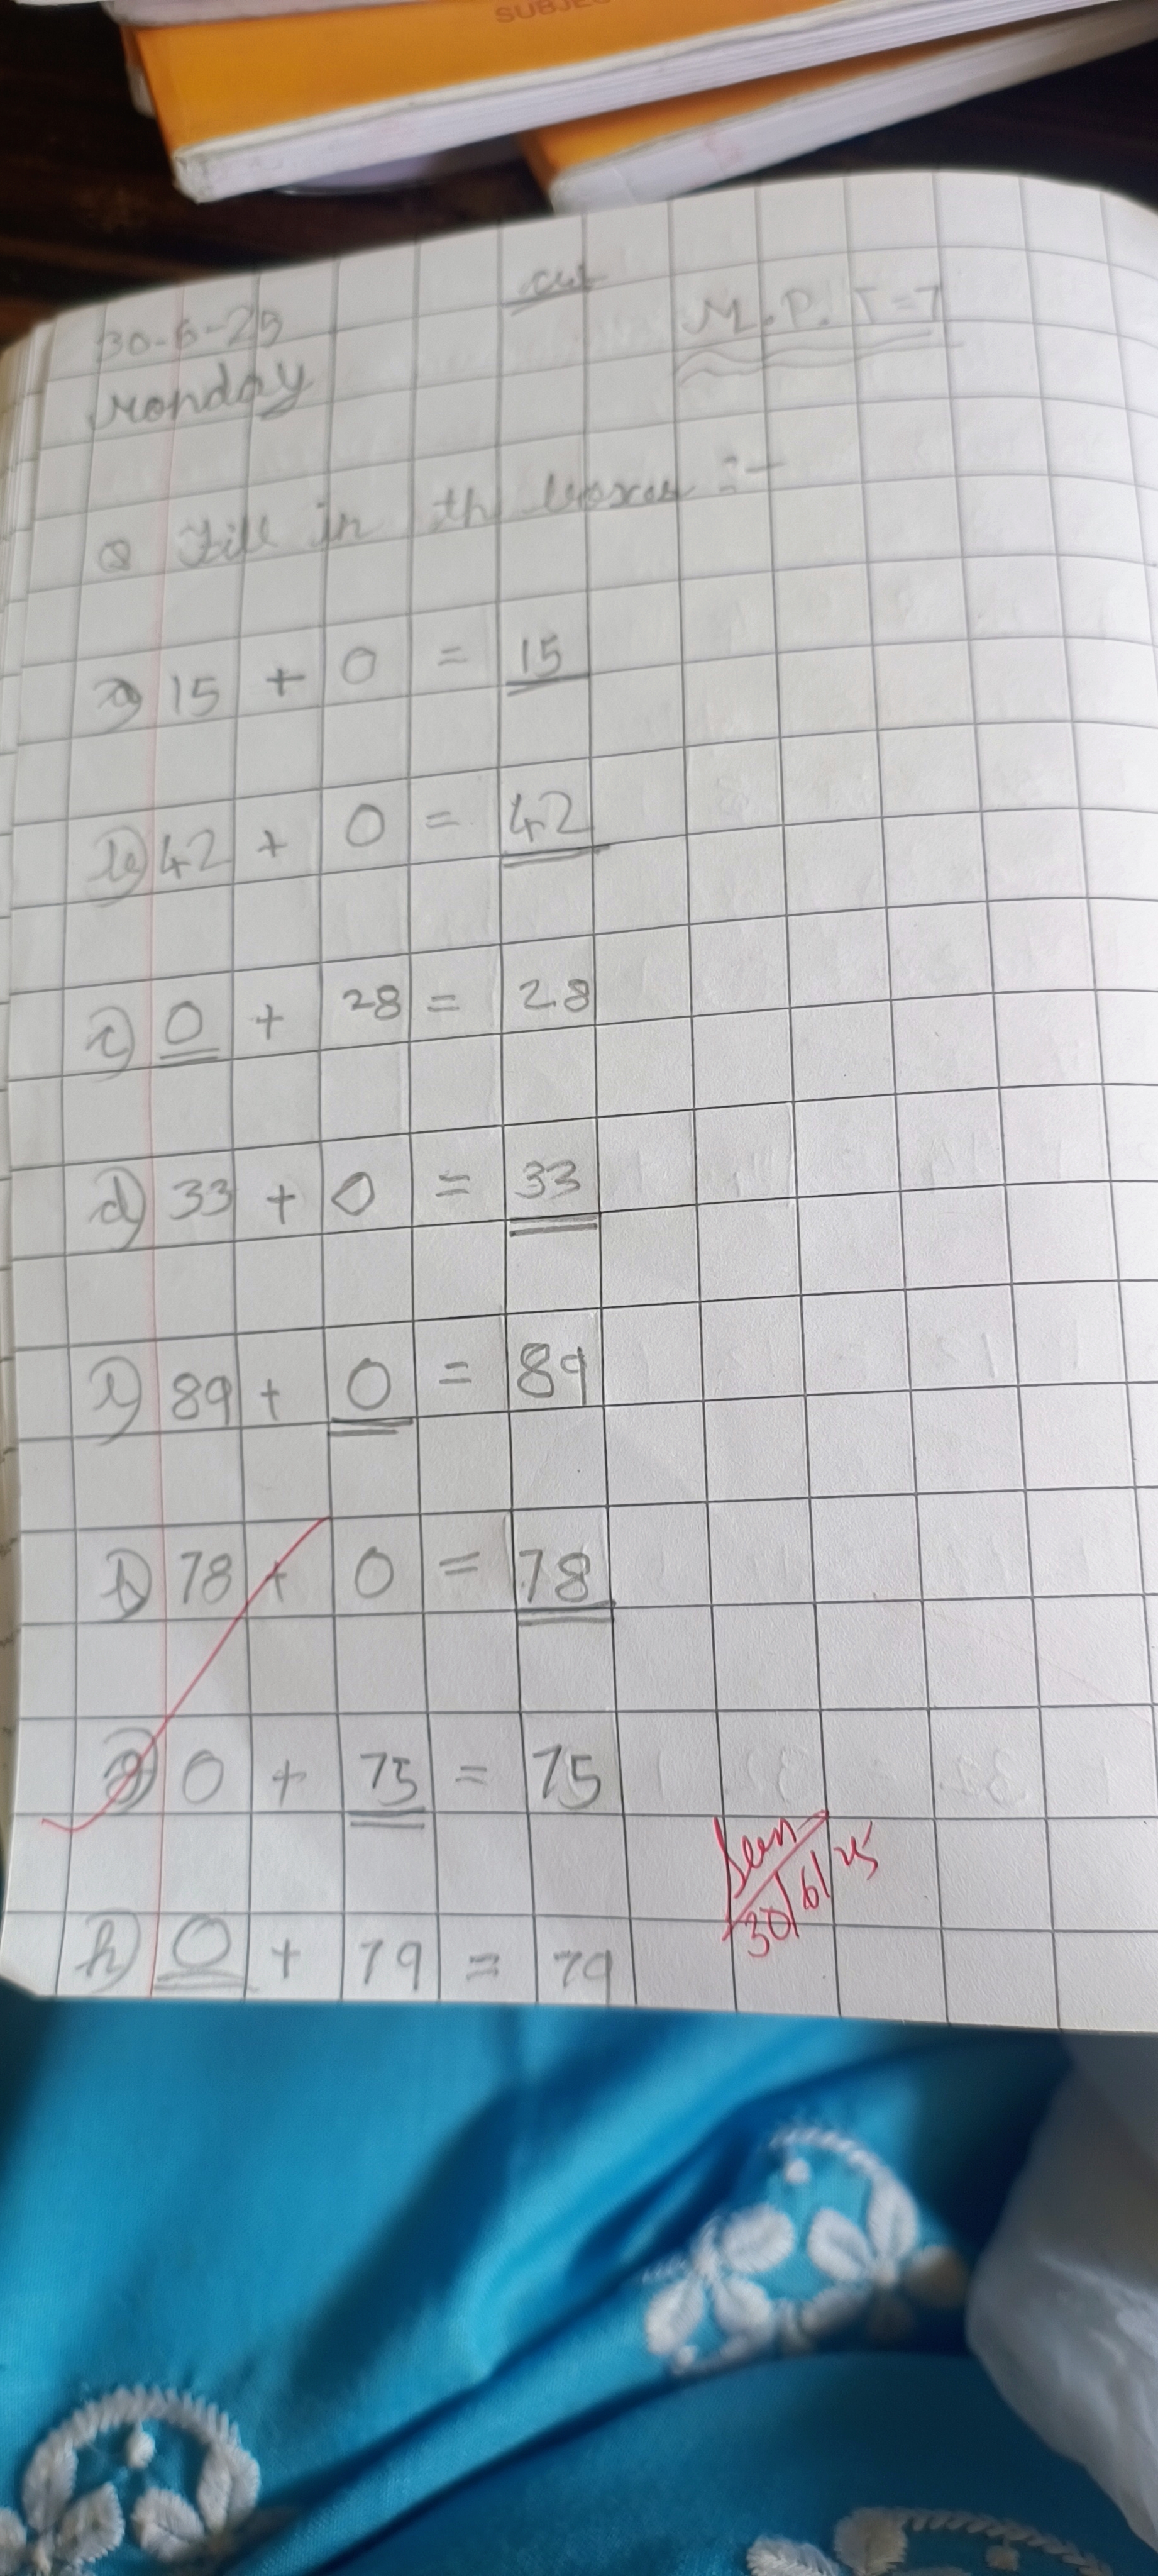 SUBJE
cw
30-6-25
M.P. T-7
Monday
Q Fill in the boxes :-
a) 15 + 0 = 15
b) 42 + 0 = 42
c) 0 + 28 = 28
d) 33 + 0 = 33
e) 89 + 0 = 89
f) 78 + 0 = 78
g) 0 + 75 = 75
Seen
30/6/25
h) 0 + 79 = 79